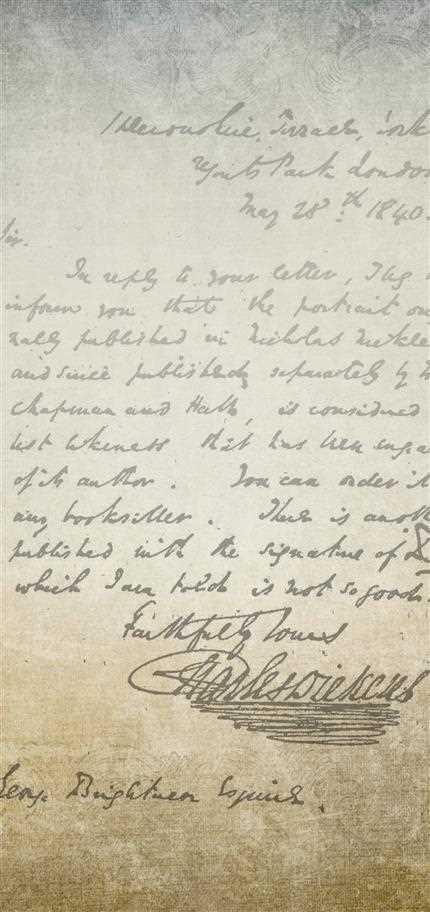 1 Devonshire Terrace, York
Park London
May 28th 1840.
Sir.
In reply to your letter, I beg
inform you that the portrait
nally published in Nicholas Nickle
and since published separately by
Chapman and Hall, is considered
best likeness that has been engra
of its author. You can order it
any bookseller. There is anoth
published with the signature of
which I am told is not so good.
Faithfully Yours
Charles Dickens
George Esquire.